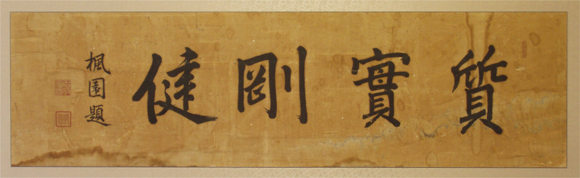 質實剛健
楓園題